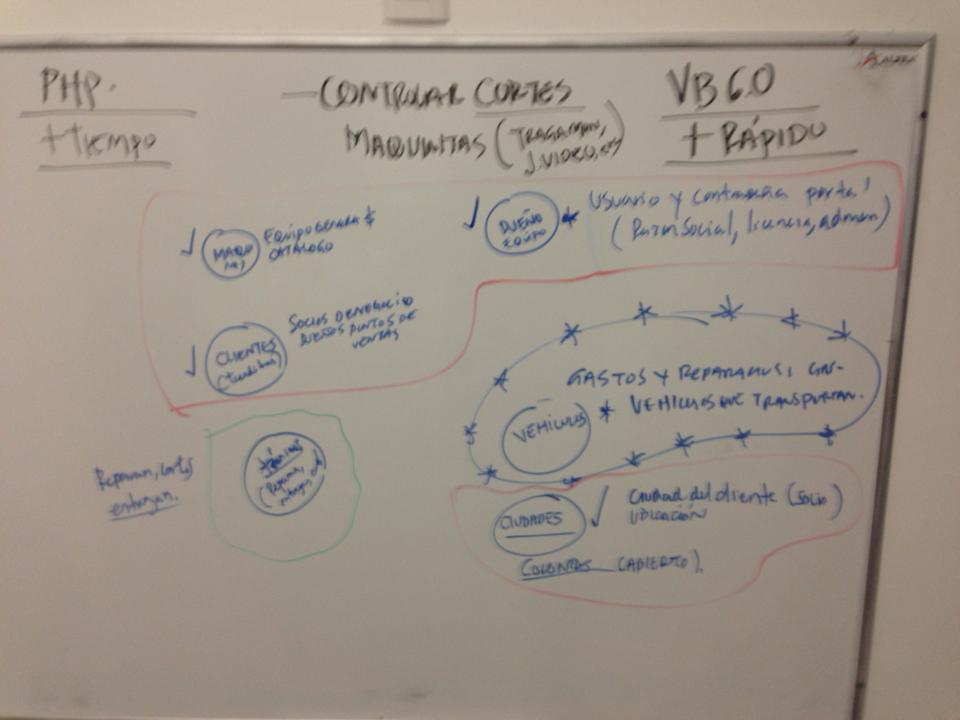 PHP.
+ TIEMPO
— CONTROLAR CORTES
MAQUINITAS (TRAGAMON,
J. VIDEO, etc)
VB 6.0
+ RÁPIDO
✓ MAQUI
EQUIPO GENERA $
CATÁLOGO
✓ DUEÑO
EQUIPO *
Usuario y Contraseña
(Razon Social, licencia, admon)
✓ CLIENTES
SOCIOS DE NEGOCIO
DUEÑOS PUNTOS DE
VENTAS
GASTOS Y REPARAMOS,
VEHICULOS * VEHICULOS QUE TRANSPORTAN.
Reparan, cortes
entregan.
CIUDADES ✓ Ciudad del cliente (socio)
UBICACIÓN
COLONIAS (ABIERTO).